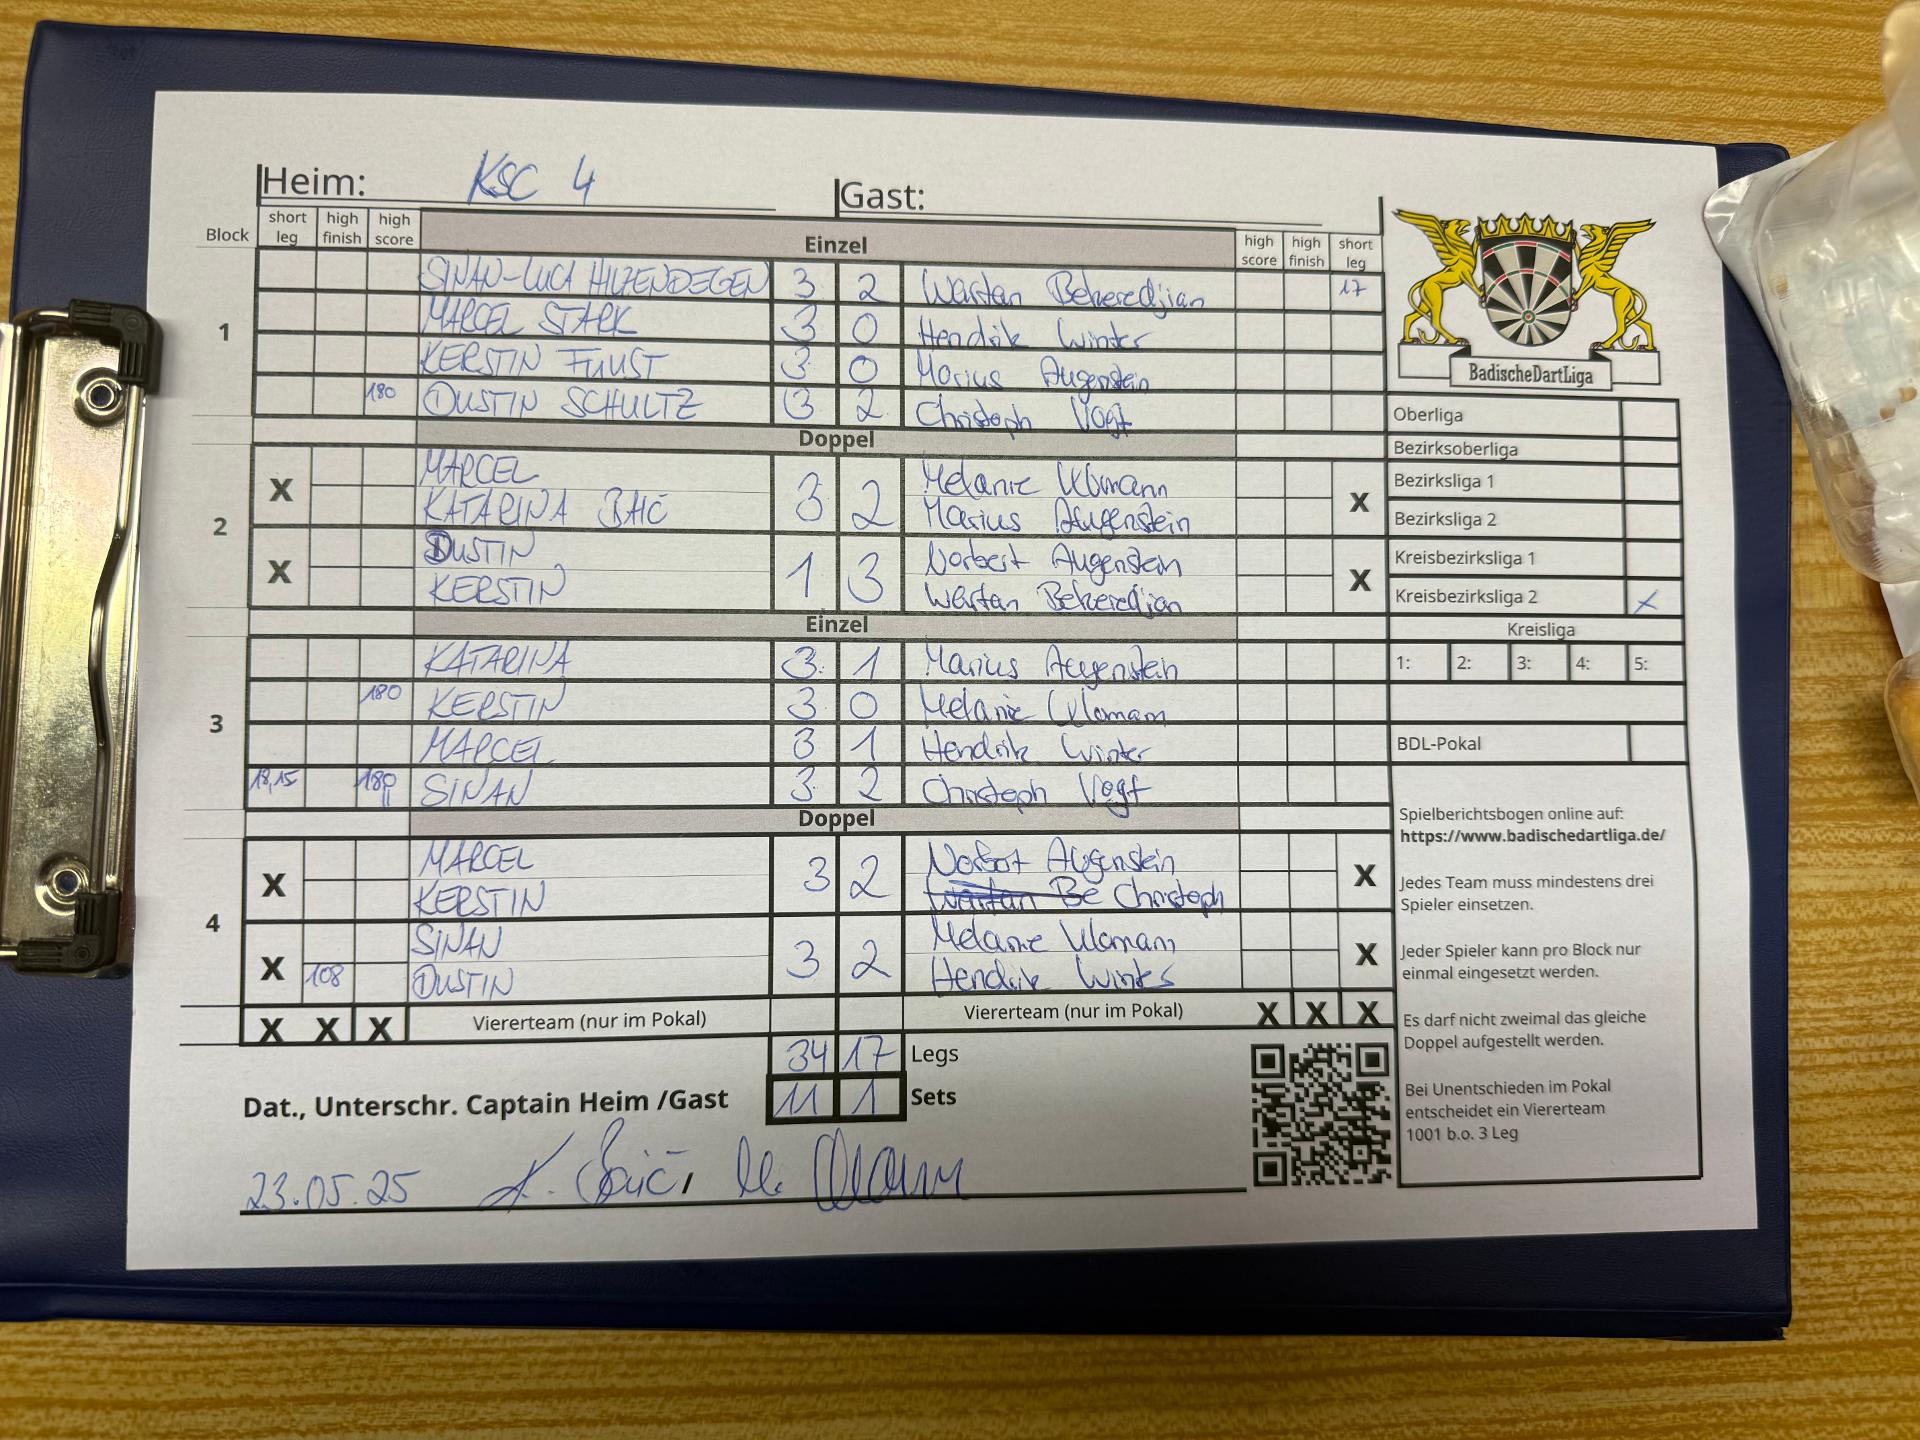 Heim: KSC 4 Gast:
Block short leg high finish high score Einzel high score high finish short leg
1
SINAN-LUCA HILZENDEGEN 3 2 Wartan Bekeredjian 17
MARCEL STARK 3 0 Hendrik Winter
KERSTIN 3 0 Marius Augenstein
180 DUSTIN SCHULTZ 3 2 Christoph Vogt
Doppel
2
X MARCEL 3 2 Melanie X
KATARINA BAIĆ Marius Augenstein
X DUSTIN 1 3 Norbert Augenstein X
KERSTIN Wartan Bekeredjian
Einzel
3
KATARINA 3 1 Marius Augenstein
180 KERSTIN 3 0 Melanie
MARCEL 3 1 Hendrik Winter
18,15 180 II SINAN 3 2 Christoph Vogt
Doppel
4
X MARCEL 3 2 Norbert Augenstein X
KERSTIN Wartan Be Christoph
X SINAN 3 2 Melanie X
108 DUSTIN Hendrik Winter
X X X Viererteam (nur im Pokal) Viererteam (nur im Pokal) X X X
34 17 Legs
Dat., Unterschr. Captain Heim /Gast 11 1 Sets
23.05.25 K. Baić,
BadischeDartLiga
Oberliga
Bezirksoberliga
Bezirksliga 1
Bezirksliga 2
Kreisbezirksliga 1
Kreisbezirksliga 2 X
Kreisliga
1: 2: 3: 4: 5:
BDL-Pokal
Spielberichtsbogen online auf:
https://www.badischedartliga.de/
Jedes Team muss mindestens drei
Spieler einsetzen.
Jeder Spieler kann pro Block nur
einmal eingesetzt werden.
Es darf nicht zweimal das gleiche
Doppel aufgestellt werden.
Bei Unentschieden im Pokal
entscheidet ein Viererteam
1001 b.o. 3 Leg